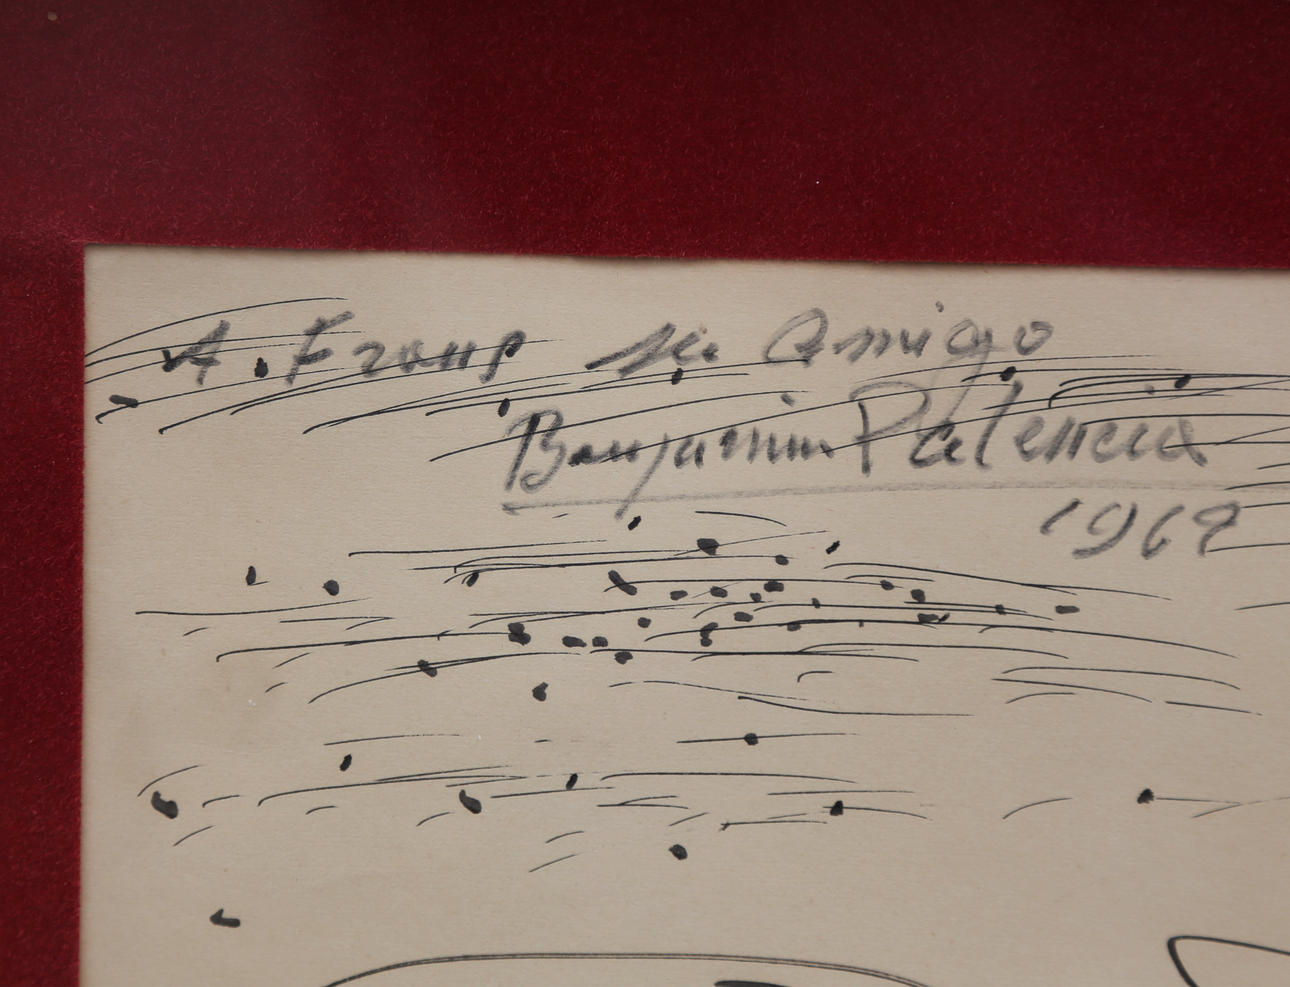 A. Frans su amigo
Benjamin Palencia
1967